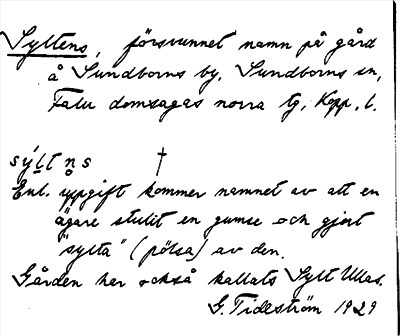 Syltens, försvunnet namn på gård
å Sundborns by, Sundborns sn,
Falu domsagas norra tg, Kopp. l.
sýltn̥s †
Enl. uppgift kommer namnet av att en
ägare stulit en gumse och gjort
"sylta" (pölsa) av den.
Gården har också kallats Sylt Ullas.
G. Tideström 1929